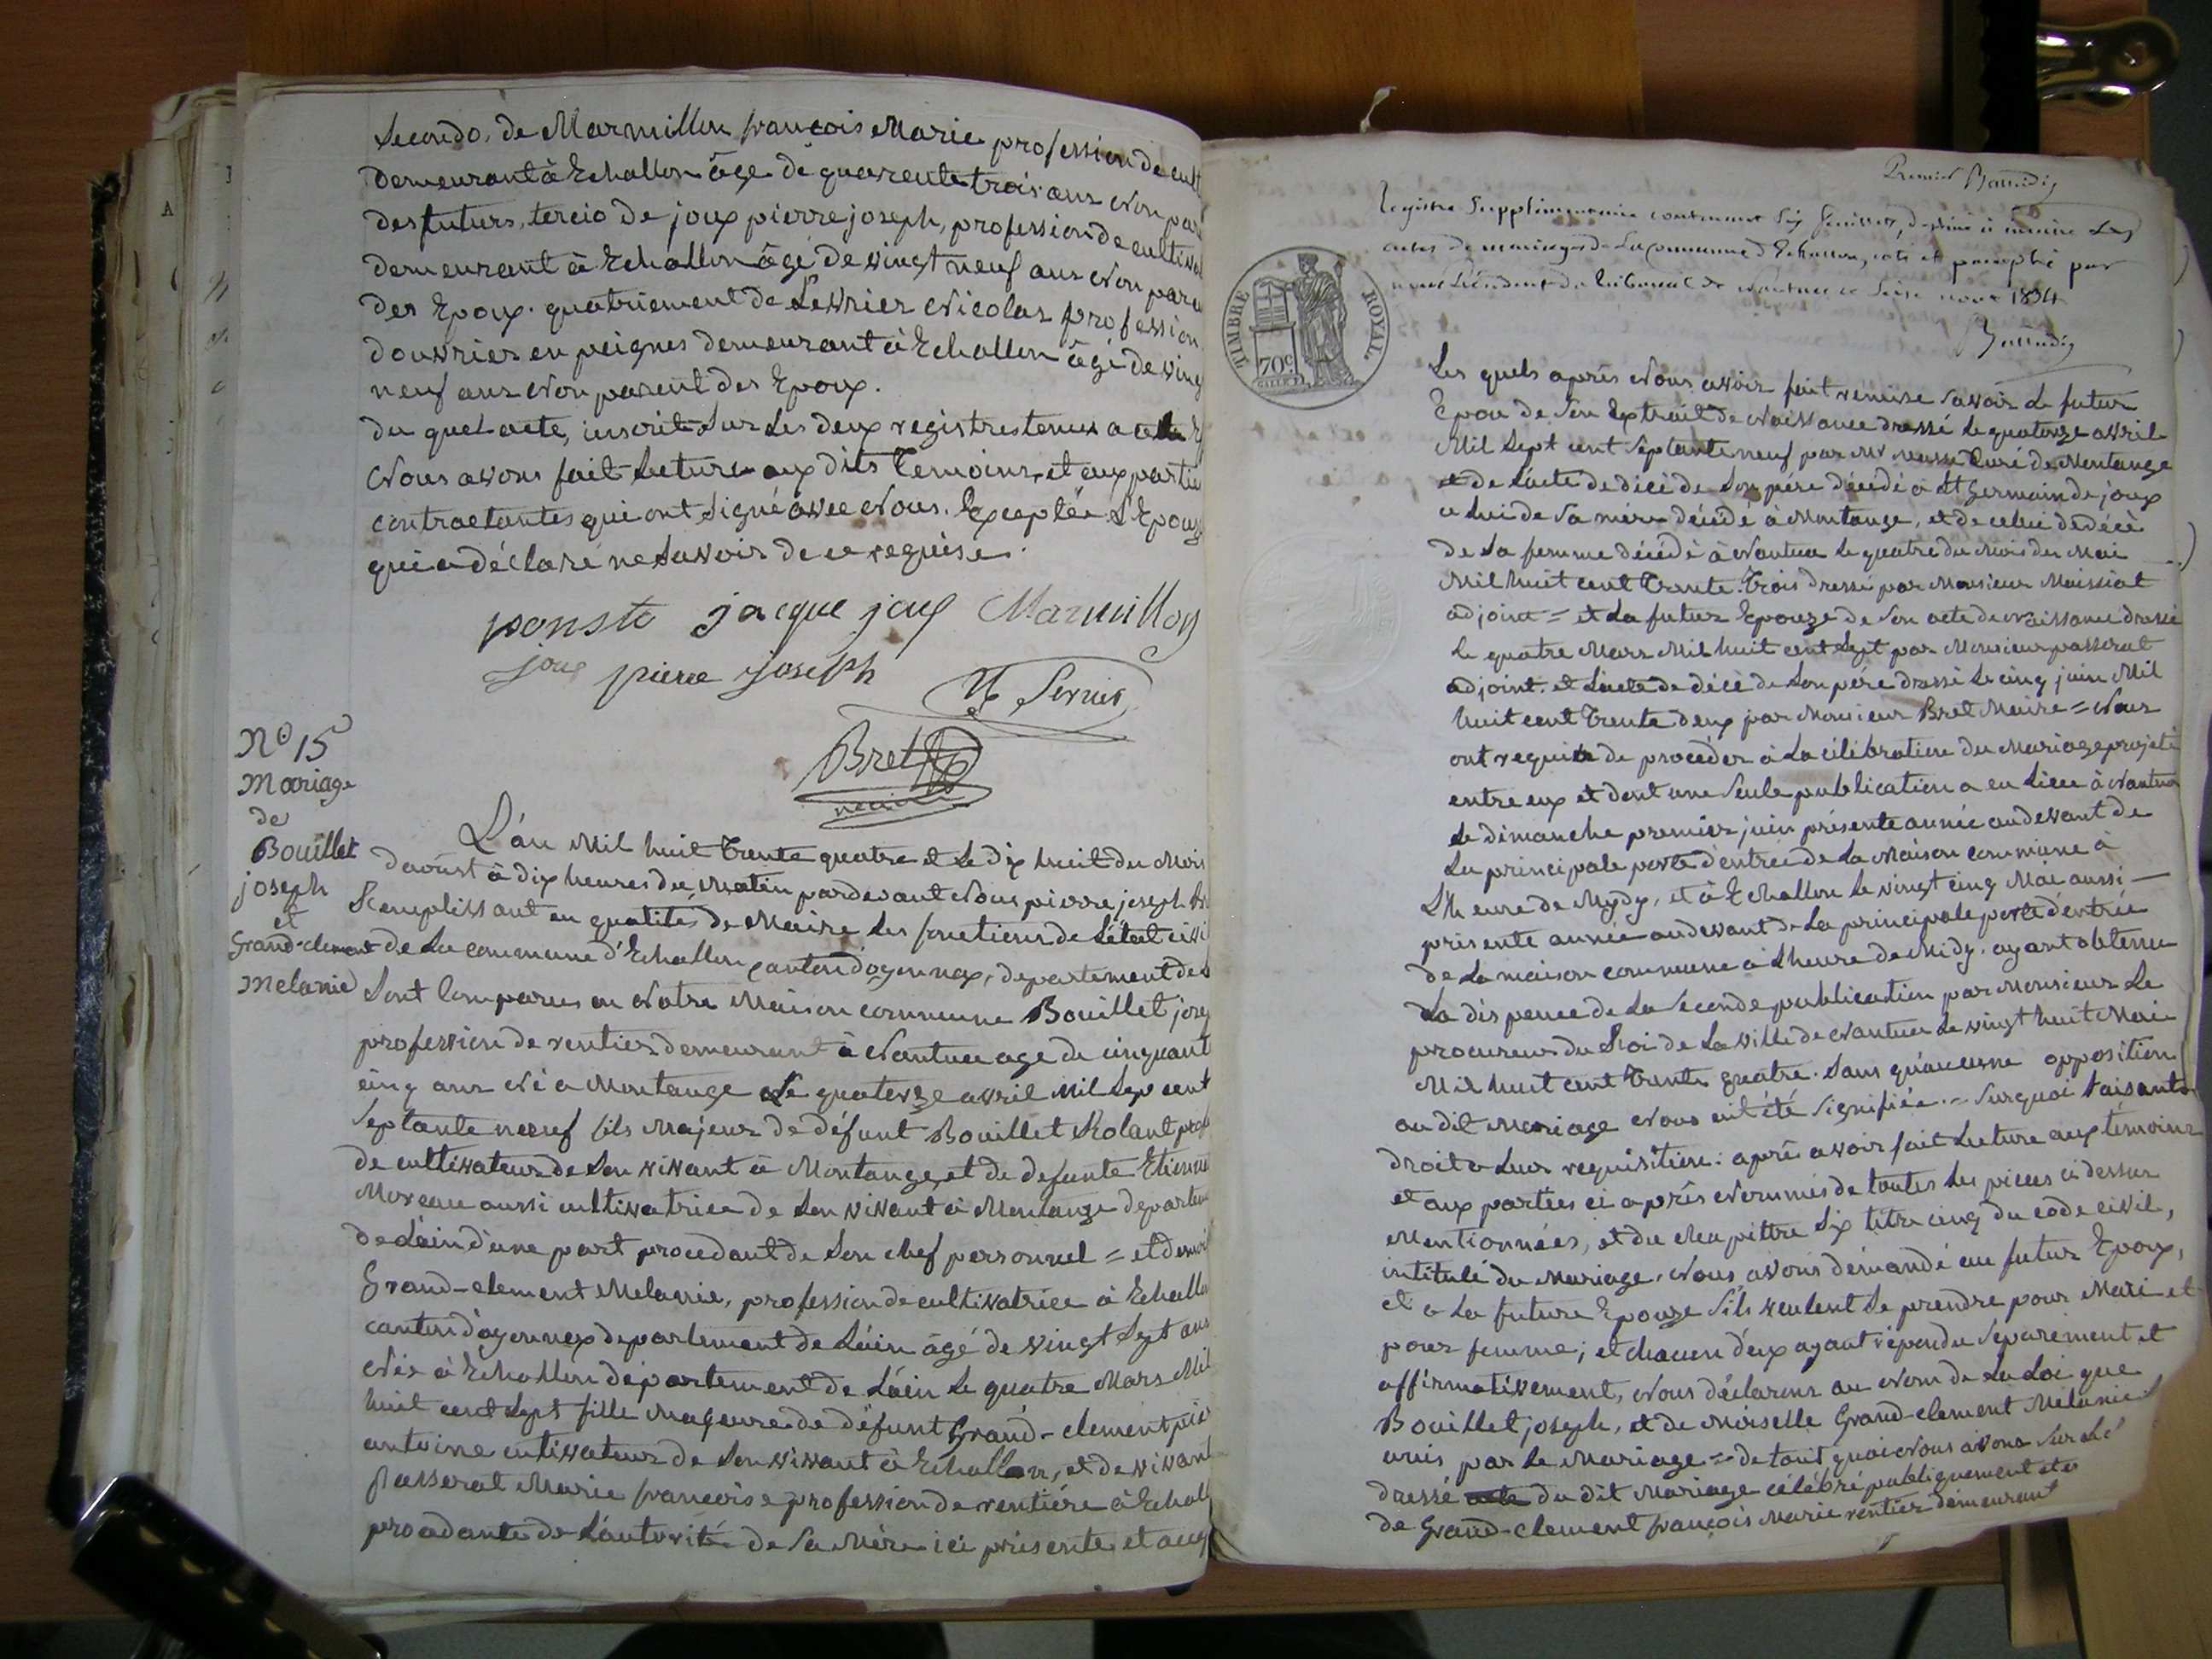 Secondo, de Marmillon françois Marie profession de cult
demeurant à Echallon âge de quarente trois ans Non par
des futurs, tercio de joux pierre joseph, profession de cultiva
demeurant à Echallon âgé de vingt neuf ans Non pare
des Epoux. quatriement de Sevrier Nicolas profession
douvrier en peignes demeurant à Echallon âgé de ving
neuf ans Non parent des Epoux.
du quel acte, inscrit sur les deux registres tenus a
Nous avons fait Leture aux dits temoins, et aux partie
contractantes qui ont signé avec Nous. Exceptée L'Epouse
qui a déclaré ne savoir de ce requise.
poncet jacque joux Marmillon
joux pierre joseph
N Servier
Bret
N° 15
Mariage
de
Bouillet
joseph
et
Grand-clement
Melanie
L'an Mil huit trente quatre et le dix huit du Mois
daoust à dix heures du Matin pardevant Nous pierre joseph Br
Remplissant en qualité de Maire les fonctions de L'état civi
de La commune d'Echallon canton d'oyonnax, departement de
sont Comparus en Notre Maison commune Bouillet jose
profession de rentier demeurant à Nantua age de cinquant
cinq ans Né a Montange Le quatorze avril Mil Sep cent
Septante neuf fils Majeur de défunt Bouillet Rolant prof
de cultivateur de son vivant à Montange, et de defunte Etienn
Moreau aussi cultivatrice de son vivant à Montange departem
de Lain d'une part procedant de son chef personnel = et demoi
Grand-clement Melanie, profession de cultivatrice à Echallo
canton d'oyonnax departement de Lain âgé de vingt sept ans
Née à Echallon département de Lain Le quatre Mars Mil
huit cent sept fille Mageure de défunt Grand-clement pie
antoine cutivateur de son vivant à Echallon, et de vivant
Passerat Marie françoise profession de rentiére à Echall
procdante de L'autorité de sa Mère ici présente et aux
Premier Baudin
Registre Supplimentaire contenant Six feuillets, destiné à inscrire Les
actes de mariages de La commune d'Echallon, coté et paraphé par
nous Président du tribunal de Nantua ce Seise aout 1834
TIMBRE ROYAL
70c
Les quels aprés Nous avoir fait remise savoir Le futur
Epou de son Extrait de Naissance dressé Le quatorze avril
Mil Sept cent Septante neuf par Mr Curé de Montange
et de Lacte de décè de son pere décédé à St Germain de joux
celui de sa mère décédé à Montange, et de celui de décè
de sa femme décédé à Nantua Le quatre du Mois de Mai
Mil huit cent trente trois dressé par Monsieur Maissiat
adjoint = et La futur Epouze de son acte de Naissance dressé
Le quatre Mars Mil huit cent sept par Monsieur passerat
adjoint. et Lacte de décè de son pére dressé Le cinq juin Mil
huit cent trente deux par Monsieur Bret Maire = Nous
ont requis de proceder à La célébration du Mariage projeté
entre eux et dont une seule publication a eu Lieu à Nantua
Le dimanche premier juin présente année au devant de
La principale porte d'entrée de La Maison commune à
L'heure de Mydy, et à Echallon Le vingt cinq Mai aussi
présente année au devant de La principale porte d'entrée
de La maison commune à Lheure de Midy. ayant obtenu
La dispence de La seconde publication par Monsieur Le
procureur du Roi de La ville de Nantua Le vingt huit Mai
Mil huit cent trente quatre. sans qu'aucune opposition
au dit Mariage Nous ait été signifiée. = surquoi faisant
droit a Leur requisition: aprés avoir fait Lecture aux témoins
et aux parties ci aprés Nommés de toutes Les pieces ci dessus
Mentionnées, et du chapittre Six titre cinq du code civil,
intitulé du Mariage, Nous avons démandé au futur Epoux,
et a La future Epouze s'ils veulent se prendre pour Mari et
pour femme; et chacun d'eux ayant répondu séparement et
affirmativement, Nous déclarons au Nom de La Loi que
Bouillet joseph, et de Moiselle Grand-clement Mélanie
unis par Le Mariage = de tout quoi Nous avons sur Lé
dressé du dit Mariage célébré publiquement
de Grand-clement françois Marie rentier demeurant